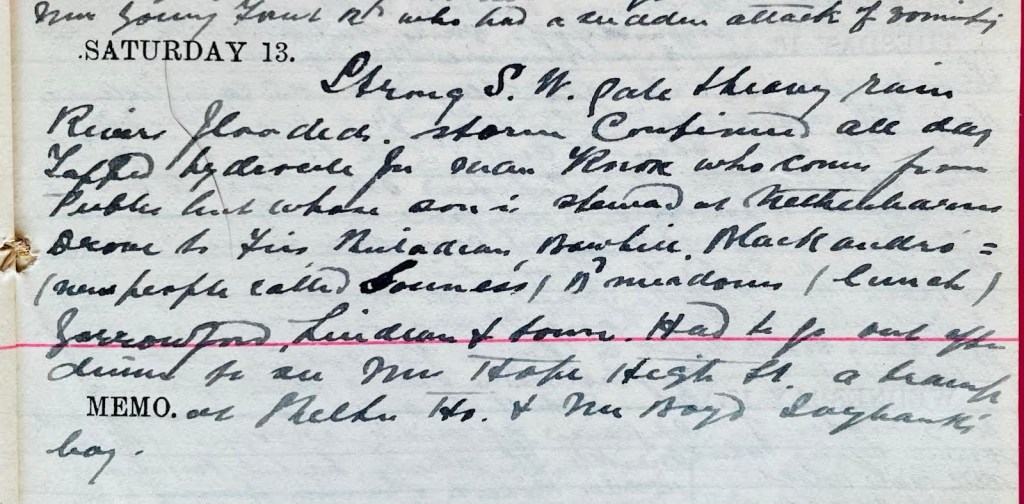 Mrs Young Forest Rd who had a sudden attack of vomiting
SATURDAY 13.
Strong S. W. gale & heavy rain
Rivers flooded. storm continued all day
Tapped hydrocele for man Knox who comes from
Peebles but whose son is steward at Netherbarns
Drove to Tins Philadean, Bowhill, Blackandro =
(new people called Souness) B meadows (lunch)
Yarrowford, Lindean & town. Had to go out after
dinner to see Mrs Hope High St. a tramp
MEMO. at Shelter Ho. & Mr Boyd Loybank's
boy.